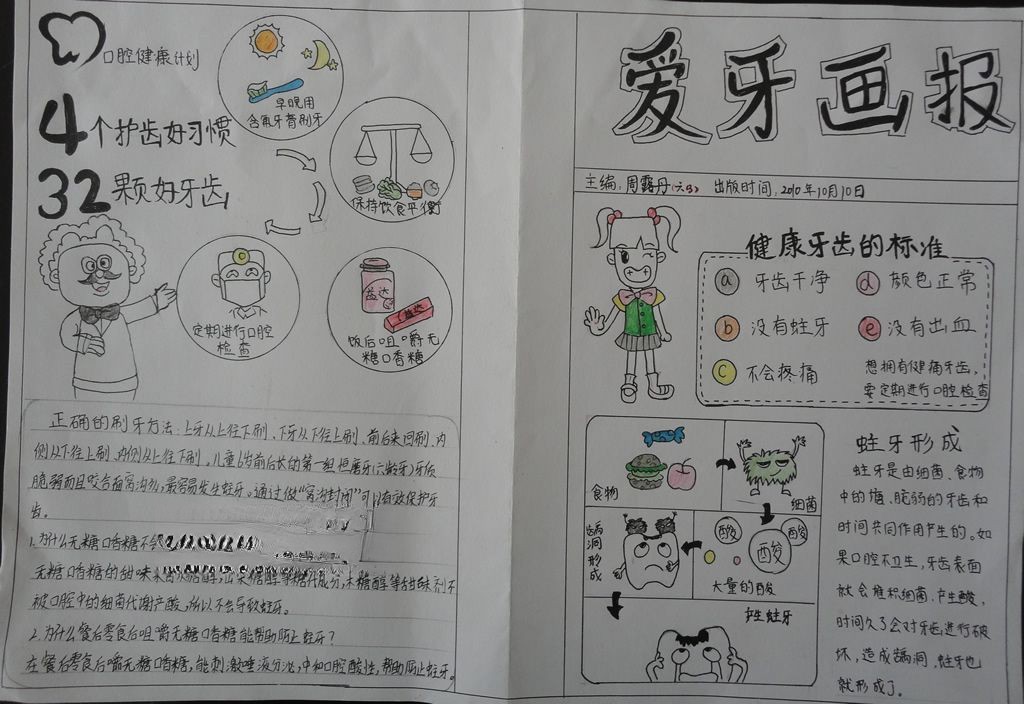 口腔健康计划
4个护齿好习惯
32颗好牙齿
早晚用
含氟牙膏刷牙
保持饮食平衡
益达
益达
饭后咀嚼无
糖口香糖
定期进行口腔
检查
正确的刷牙方法：上牙从上往下刷、下牙从下往上刷、前后来回刷、内
侧从下往上刷、内侧从上往下刷。儿童6岁前后长的第一组恒磨牙(六龄牙)牙质
脆弱而且咬合面窝沟多，最容易发生蛀牙。通过做"窝沟封闭"可以有效保护牙
齿。
1.为什么无糖口香糖不会
无糖口香糖的甜味来 木糖醇等甜味剂不
被口腔中的细菌代谢产酸，所以不会导致蛀牙。
2.为什么餐后零食后咀嚼无糖口香糖能帮助防止蛀牙？
在餐后零食后嚼无糖口香糖，能刺激唾液分泌，中和口腔酸性，帮助防止蛀牙。
爱牙画报
主编：周露丹(六3) 出版时间：2010年10月10日
健康牙齿的标准
a 牙齿干净 d 颜色正常
b 没有蛀牙 e 没有出血
c 不会疼痛
想拥有健痛牙齿，
要定期进行口腔检查
食物
细菌
龋洞形成
酸
酸
酸
大量的酸
产生蛀牙
蛀牙形成
蛀牙是由细菌、食物
中的糖、脆弱的牙齿和
时间共同作用产生的。如
果口腔不卫生，牙齿表面
就会堆积细菌、产生酸，
时间久了会对牙齿进行破
坏，造成龋洞，蛀牙也
就形成了。